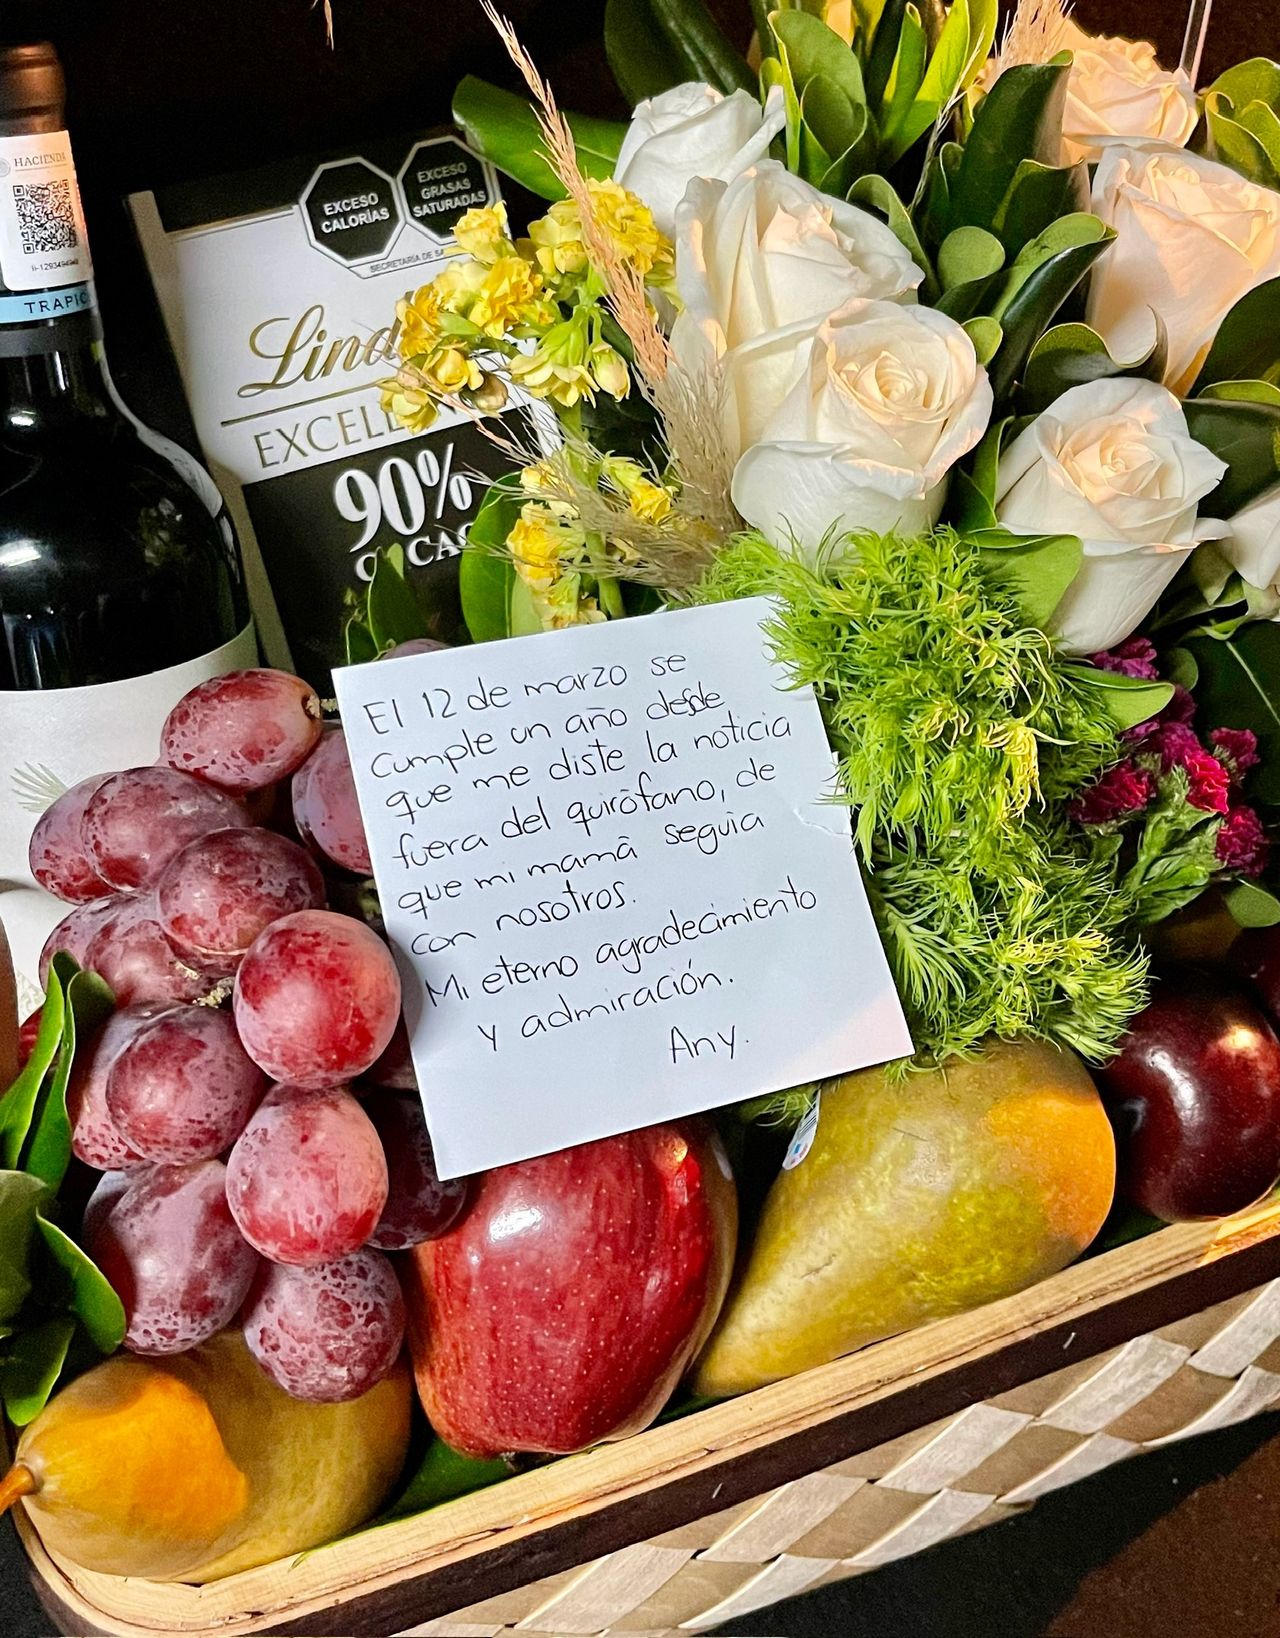 HACIENDA
TRAPIC
EXCESO
CALORÍAS
EXCESO
GRASAS
SATURADAS
SECRETARÍA DE SA
Lind
EXCELL
90%
CACAO
El 12 de marzo se
cumple un año desde
que me diste la noticia
fuera del quirófano, de
que mi mamá seguía
con nosotros.
Mi eterno agradecimiento
y admiración.
Any.